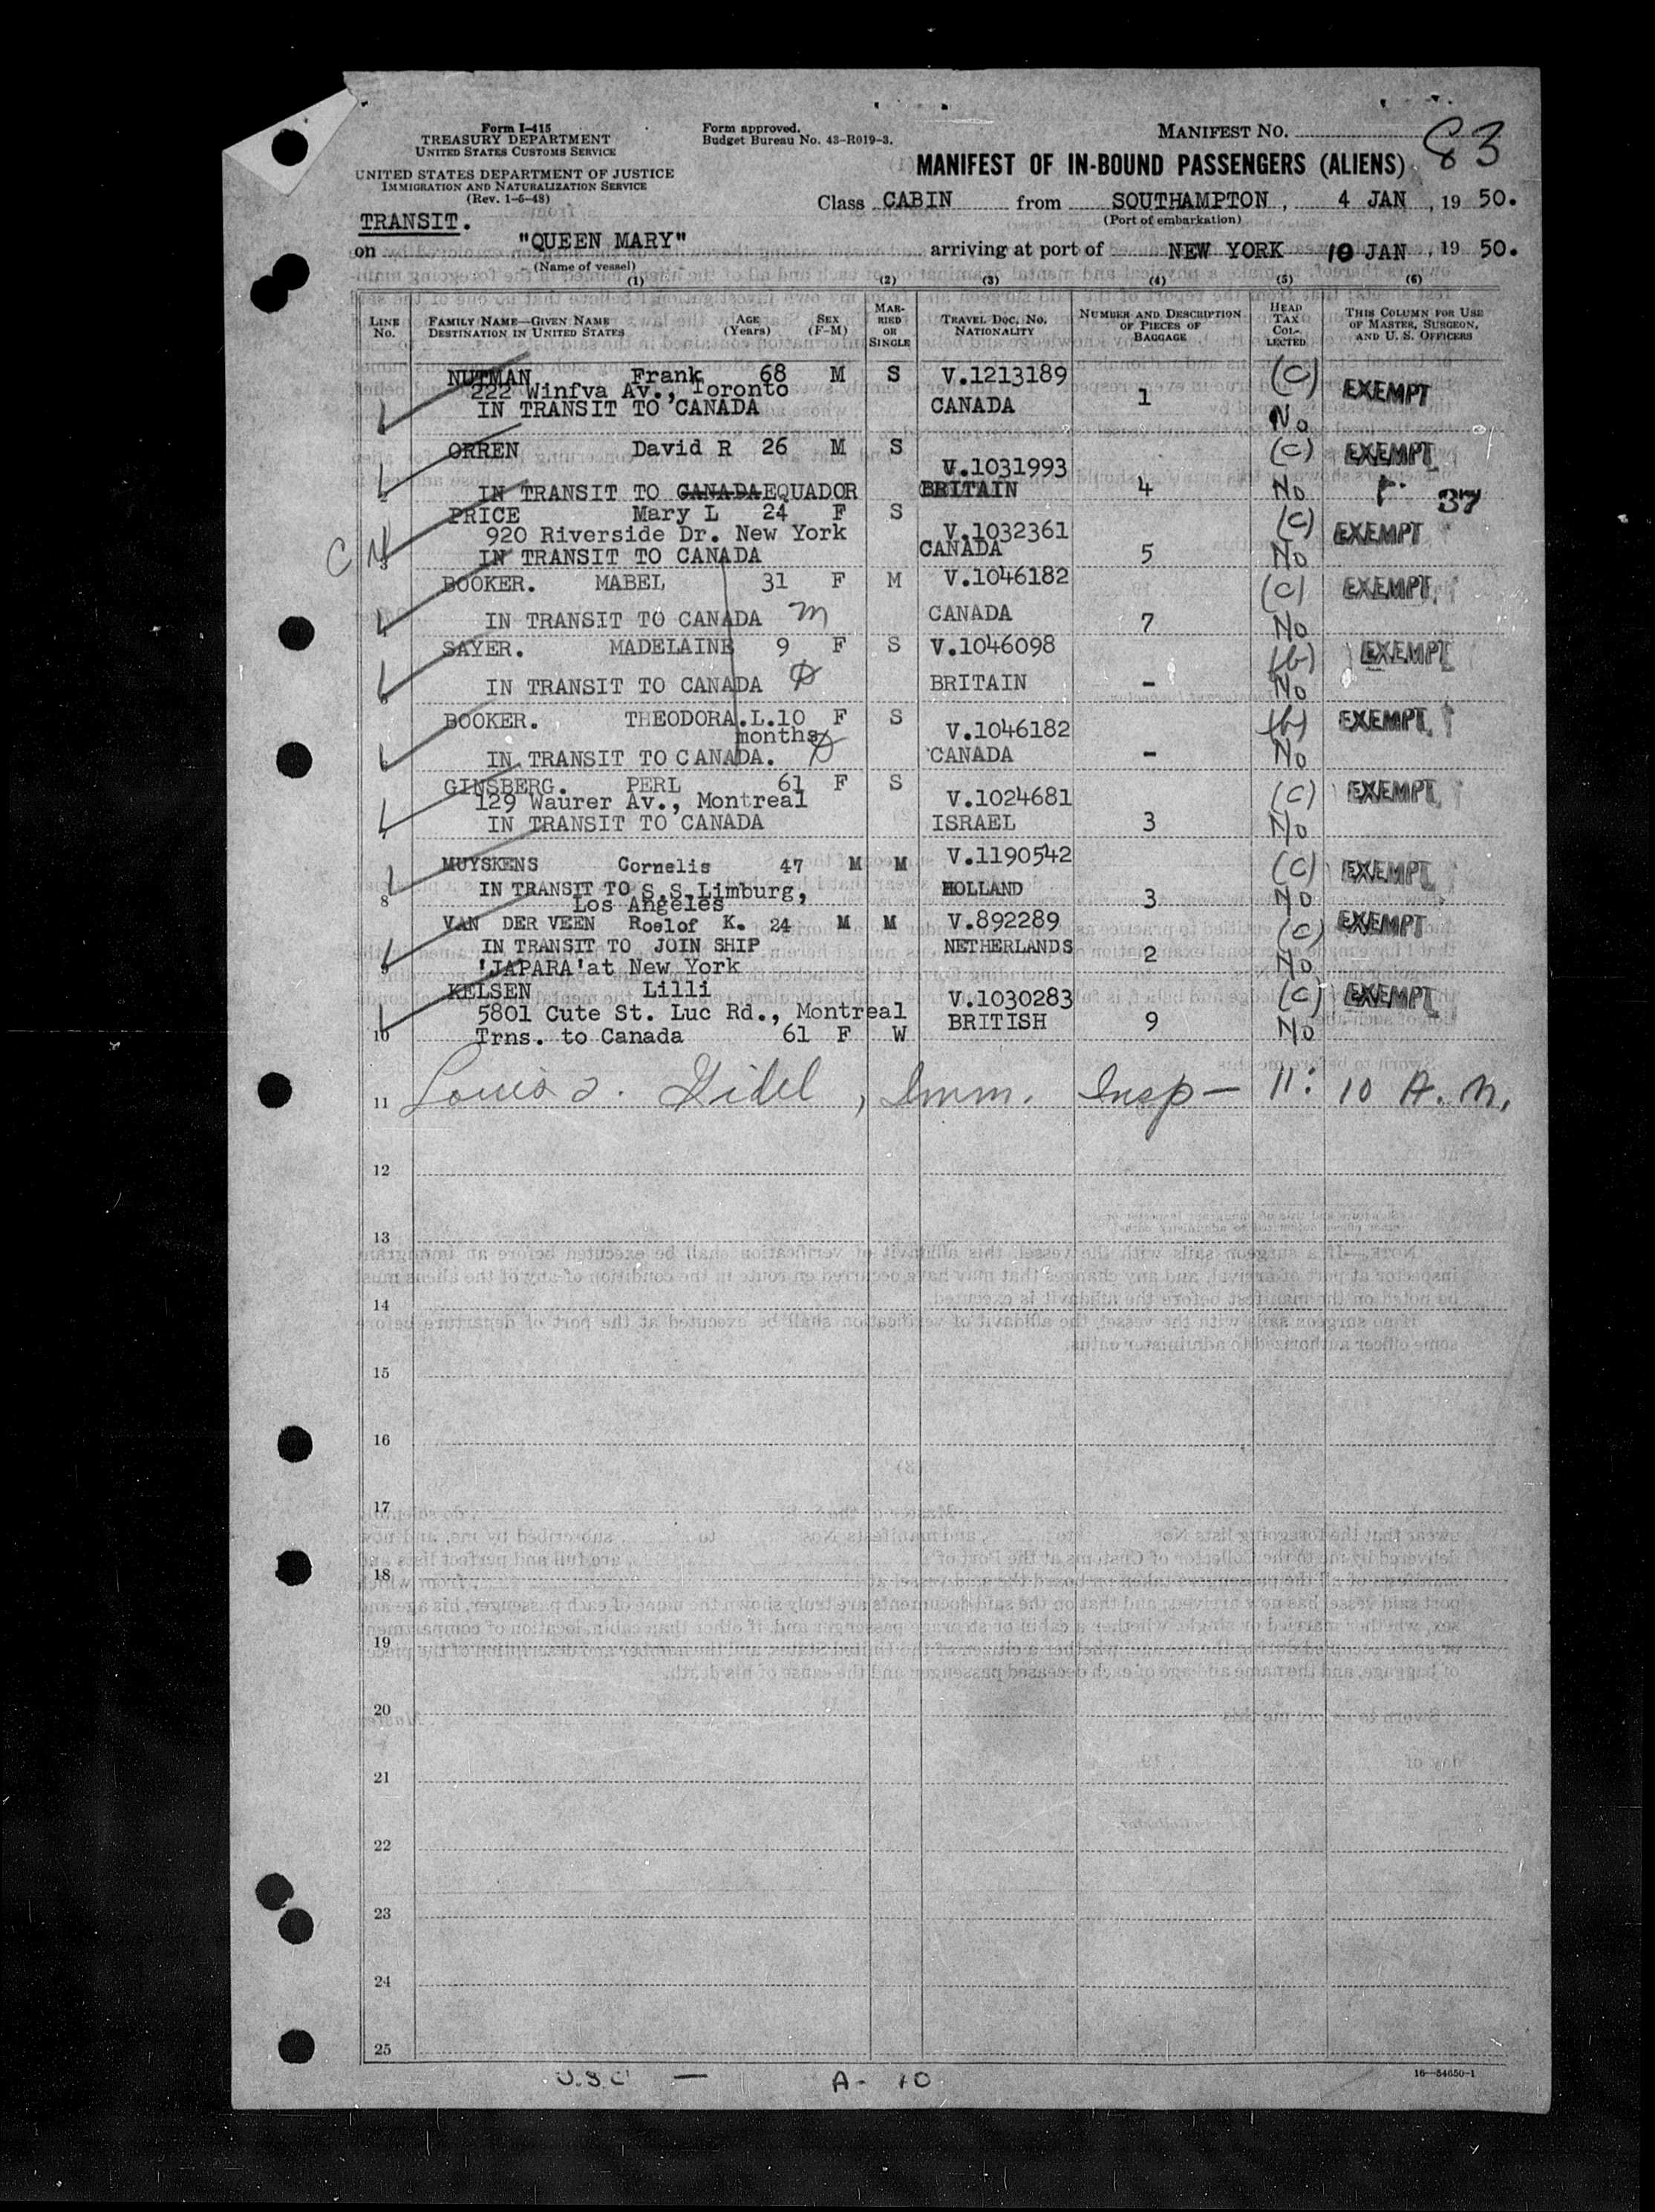 Form I-415
TREASURY DEPARTMENT
UNITED STATES CUSTOMS SERVICE
UNITED STATES DEPARTMENT OF JUSTICE
IMMIGRATION AND NATURALIZATION SERVICE
(Rev. 1-6-48)
Form approved.
Budget Bureau No. 43-R019-3.
MANIFEST NO. 83
MANIFEST OF IN-BOUND PASSENGERS (ALIENS)
Class CABIN from SOUTHAMPTON, 4 JAN, 19 50.
(Port of embarkation)
TRANSIT.
on "QUEEN MARY" arriving at port of NEW YORK 10 JAN, 19 50.
(Name of vessel)
(1) (2) (3) (4) (5) (6)
LINE No. FAMILY NAME—GIVEN NAME DESTINATION IN UNITED STATES AGE (Years) SEX (F-M) MARRIED OR SINGLE TRAVEL DOC. NO. NATIONALITY NUMBER AND DESCRIPTION OF PIECES OF BAGGAGE HEAD TAX COLLECTED THIS COLUMN FOR USE OF MASTER, SURGEON, AND U. S. OFFICERS
NUTMAN Frank 68 M S V.1213189 (C) EXEMPT
222 Winfva Av., Toronto
IN TRANSIT TO CANADA CANADA 1 No
ORREN David R 26 M S V.1031993 (C) EXEMPT
2 IN TRANSIT TO CANADA EQUADOR BRITAIN 4 No 37
PRICE Mary L 24 F S V.1032361 (C) EXEMPT
920 Riverside Dr. New York
C N 3 IN TRANSIT TO CANADA CANADA 5 No
BOOKER. MABEL 31 F M V.1046182 (C) EXEMPT
IN TRANSIT TO CANADA m CANADA 7 No
SAYER. MADELAINE 9 F S V.1046098 (b) EXEMPT
IN TRANSIT TO CANADA BRITAIN - No
BOOKER. THEODORA.L. 10 F S V.1046182 (b) EXEMPT
months
IN TRANSIT TO CANADA. CANADA - No
GINSBERG. PERL 61 F S V.1024681 (C) EXEMPT
129 Waurer Av., Montreal
7 IN TRANSIT TO CANADA ISRAEL 3 No
MUYSKENS Cornelis 47 M M V.1190542 (C) EXEMPT
8 IN TRANSIT TO S.S. Limburg, HOLLAND 3 No
Los Angeles
VAN DER VEEN Roelof K. 24 M M V.892289 (C) EXEMPT
IN TRANSIT TO JOIN SHIP NETHERLANDS 2 No
9 'JAPARA' at New York
KELSEN Lilli V.1030283 (C) EXEMPT
5801 Cute St. Luc Rd., Montreal BRITISH 9 No
10 Trns. to Canada 61 F W
11 Louis J. Gidel, Imm. Insp- 11:10 A.M.
12
13
14
15
16
17
18
19
20
21
22
23
24
25
U.S.C — A- 10
16—54650-1